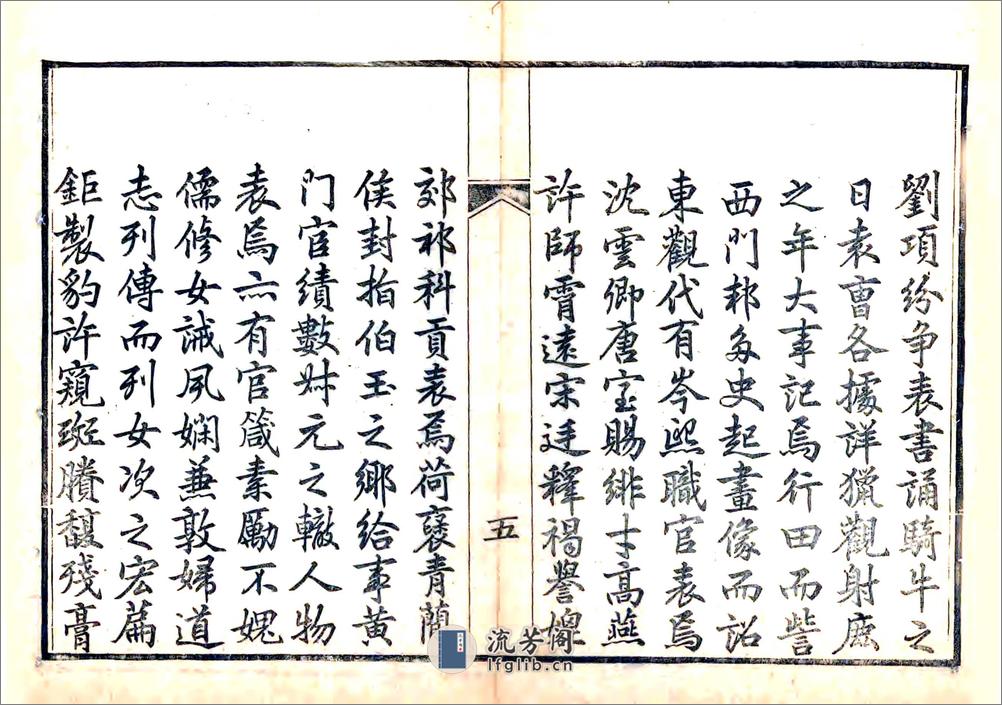 劉項紛争表書誦騎牛之
日袁曹各據詳獵觀射鹿
之年大事記焉行田而訾
西門邦多史起畫像而詔
東觀代有岑熙職官表焉
沈雲卿唐室賜緋士高燕
許師霄遠宋廷釋褐譽
五
郊祁科貢表焉荷褒青蘭
侯封拍伯玉之鄉給事黄
門官績數財元之轍人物
表焉亦有官箴素勵不媿
儒修女誡夙嫻兼敦婦道
志列傳而列女次之宏篇
鉅製豹許窺斑賸馥殘膏
流芳阁
lfglib.cn